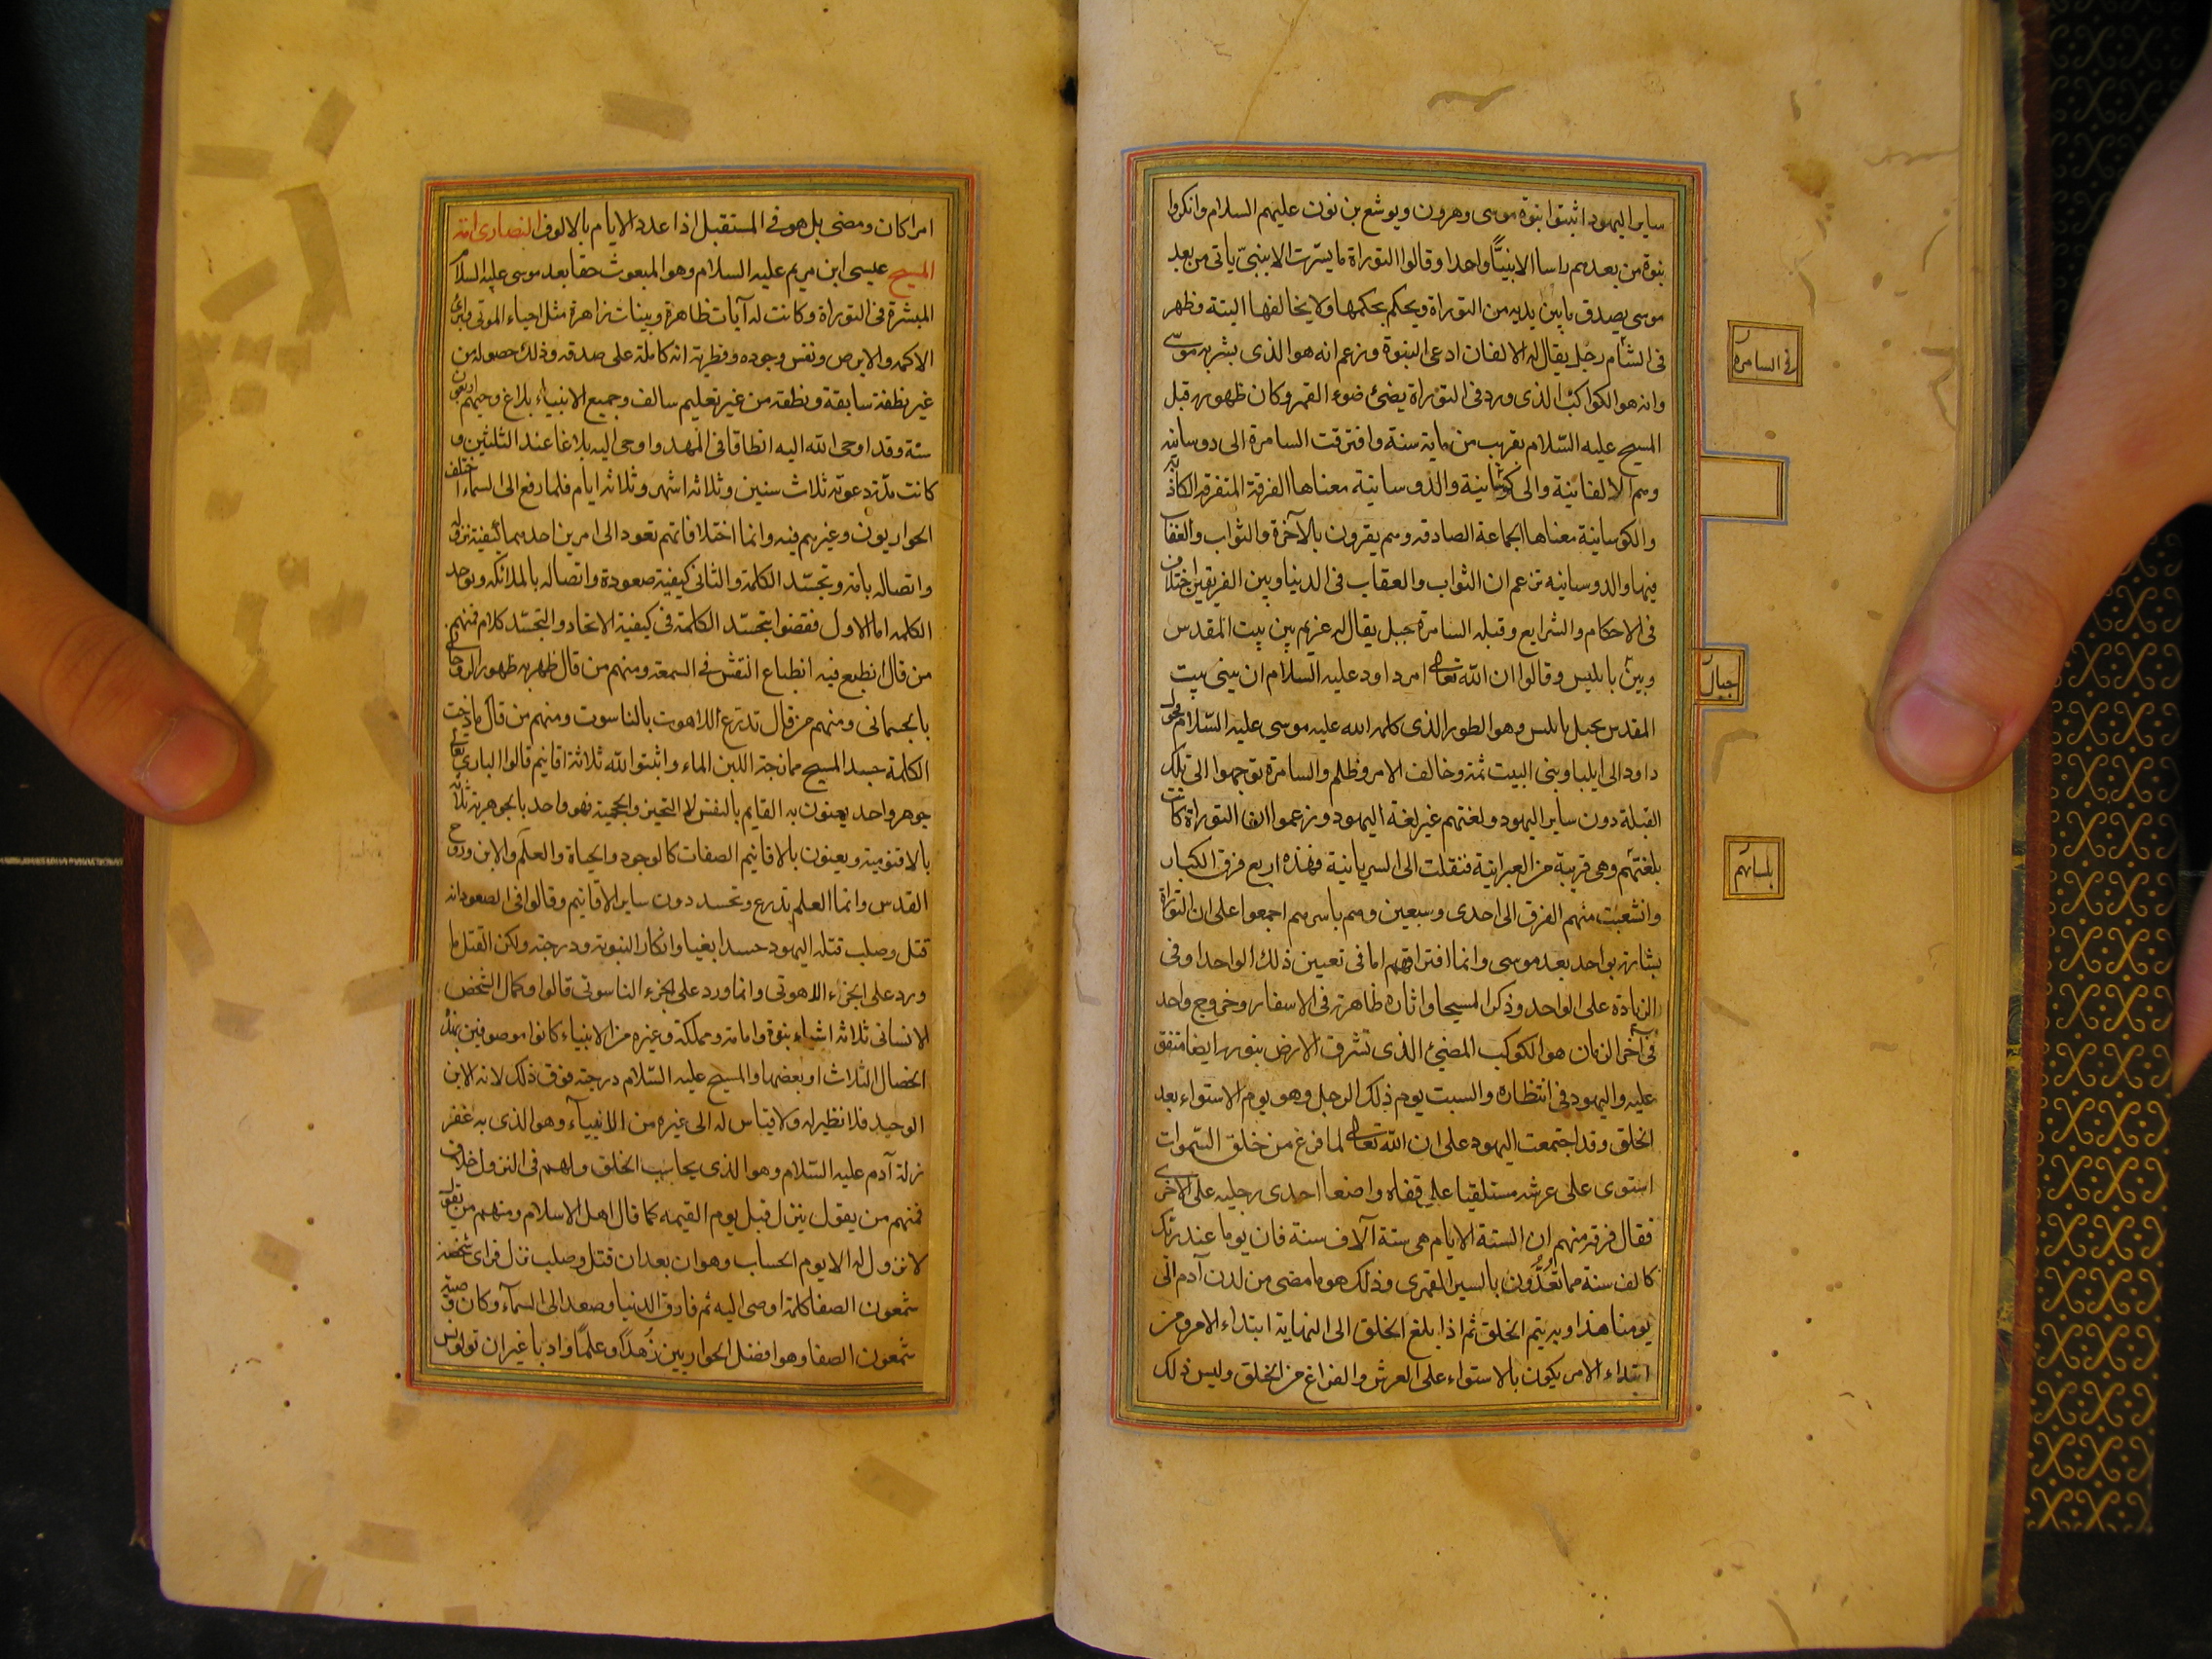 ساير اليهود اثبتوا نبوة موسى وهرون ويوشع بن نون عليهم السلام وانكروا
نبوة من بعدهم راسا الا نبيًّا واحدا وقالوا التوراة ما بشرت الا بنبىّ ياتى من بعد
موسى يصدق ما بين يديه من التوراة ويحكم بحكمها ولا يخالفها البتة وظهر
فى الشام رجل يقال له الالفان ادعى النبوة وزعم انه هو الذى بشر به موسى
وانه هو الكواكب الذى ورد فى التوراة يضئ ضوء القمر وكان ظهوره قبل
المسيح عليه السّلام بقريب من ماية سنة وافترقت السامرة الى دوسانيه
وهم الالفانية والى كوشانية والدوسانية معناها الفرقة المتفرقه الكاذبة
والكوسانية معناها الجماعة الصادقه وهم يقرون بالآخرة والثواب والعقاب
فيها والدوسانيه تزعم ان الثواب والعقاب فى الدنيا وبين الفريقين اختلاف
فى الاحكام والشرايع وقبله السامرة جبل يقال له غريم بين بيت المقدس
وبين نابليس وقالوا ان الله تعالى امر داود عليه السلام ان يبنى بيت
المقدس بجبل نابلس وهو الطور الذى كلم الله عليه موسى عليه السّلام فحول
داود الى ايليا وبنى البيت ثمة وخالف الامر وظلم والسامرة توجهوا الى تلك
القبلة دون ساير اليهود ولغتهم غير لغة اليهود وزعموا ان التوراة كانت
بلغتهم وهى قريبة من العبرانية فنقلت الى السريانية فهذه اربع فرق الكبار
وانشعبت منهم الفرق الى احدى وسبعين وهم باسرهم اجمعوا على ان التوراة
بشارة بواحد بعد موسى وانما افتراقهم اما فى تعيين ذلك الواحد او فى
الزيادة على الواحد وذكر المسيحا واثاره ظاهرة فى الاسفار وخروج واحد
فى آخر الزمان هو الكوكب المضئ الذى تشرق الارض بنوره ايضا متفق
عليه واليهود فى انتظاره والسبت يوم ذلك الرجل وهو يوم الاستواء بعد
الخلق وقد اجتمعت اليهود على ان الله تعالى لما فرغ من خلق السّموات
استوى على عرشه مستلقيا على قفاه واضعا احدى رجليه على الاخرى
فقال فرقة منهم ان الستة الايام هى ستة آلاف سنة فان يوما عند ربك
كالف سنة مما تعُدُّون بالسير القمرى وذلك هو ما مضى من لدن آدم الى
يومنا هذا وبه يتم الخلق ثم اذا بلغ الخلق الى النهاية ابتداء الامر ومن
ابتداء الامر يكون بالاستواء على العرش والفراغ من الخلق وليس ذلك
فى السامرة
جبال
بلسانهم
امرا كان ومضى بل هو فى المستقبل اذا عدد الايام بالالوف النصارى امة
المسيح عيسى ابن مريم عليه السلام وهو المبعوث حقا بعد موسى عليه السلام
المبشر فى التوراة وكانت له آيات ظاهرة وبينات زاهرة مثل احياء الموتى وابراء
الاكمه والابرص ونفس وجوده وفطرته اية كاملة على صدقه وذلك حصوله من
غير نطفة سابقة ونطقه من غير تعليم سالف وجميع الانبياء بلاغ وحيهم اربعون
سنة وقد اوحى الله اليه انطاقا فى المهد واوحى اليه بلاغا عند الثلثين و
كانت مدّة دعوته ثلاث سنين وثلاثه اشهر وثلاثه ايام فلما رفع الى السماء اختلف
الحواريون وغيرهم فيه وانما اختلافاتهم تعود الى امرين احدهما كيفية نزوله
واتصاله بامه وتجسّد الكلمة والثانى كيفية صعوده واتصاله بالملائكه وتوحد
الكلمه اما الاول فقضوا بتجسّد الكلمة فى كيفية الاتحاد والتجسّد كلام فمنهم
من قال انطبع فيه انطباع النقش فى السمعة ومنهم من قال ظهر به ظهور الروحانى
بالجسمانى ومنهم من قال تدرّع اللاهوت بالناسوت ومنهم من قال مازجت
الكلمة جسد المسيح ممازجة اللبن الماء واثبتوا لله ثلاثة اقانيم قالوا البارى تعالى
جوهر واحد يعنون به القايم بالنفس لا التحيز والحجمية فهو واحد بالجوهرية ثلاثة
بالاقنومية ويعنون بالاقانيم الصفات كالوجود والحياة والعلم والابن وروح
القدس وانما العلم تدرع وتجسد دون ساير الاقانيم وقالوا فى الصعود انه
قتل وصلب قتله اليهود حسدا بغيا وانكارا لنبوته ودرجته ولكن القتل ما
ورد على الجزء اللاهوتى وانما ورد على الجزء الناسوتى قالوا وكمال الشخص
الانسانى ثلاثه اشياء نبوة وامامة ومملكة وغيره من الانبياء كانوا موصوفين بهذه
الخصال الثلاث او بعضها والمسيح عليه السّلام درجته فوق ذلك لانه الابن
الوحيد فلا نظير له ولا قياس له الى غيره من الانبيآء وهو الذى به غفر
زلة آدم عليه السّلام وهو الذى يحاسب الخلق ولهم فى النزول خلاف
فمنهم من يقول ينزل قبل يوم القيمه كما قال اهل الاسلام ومنهم من يقول
لا نزول له الا يوم الحساب وهو ان بعد ان قتل وصلب نزل فراى شخصه
شمعون الصفا كلمه اوصى اليه ثم فارق الدنيا وصعد الى السمآء وكان وصيه
شمعون الصفا وهو افضل الحواريين زُهدًا وعلمًا وادبا غير ان تولوس